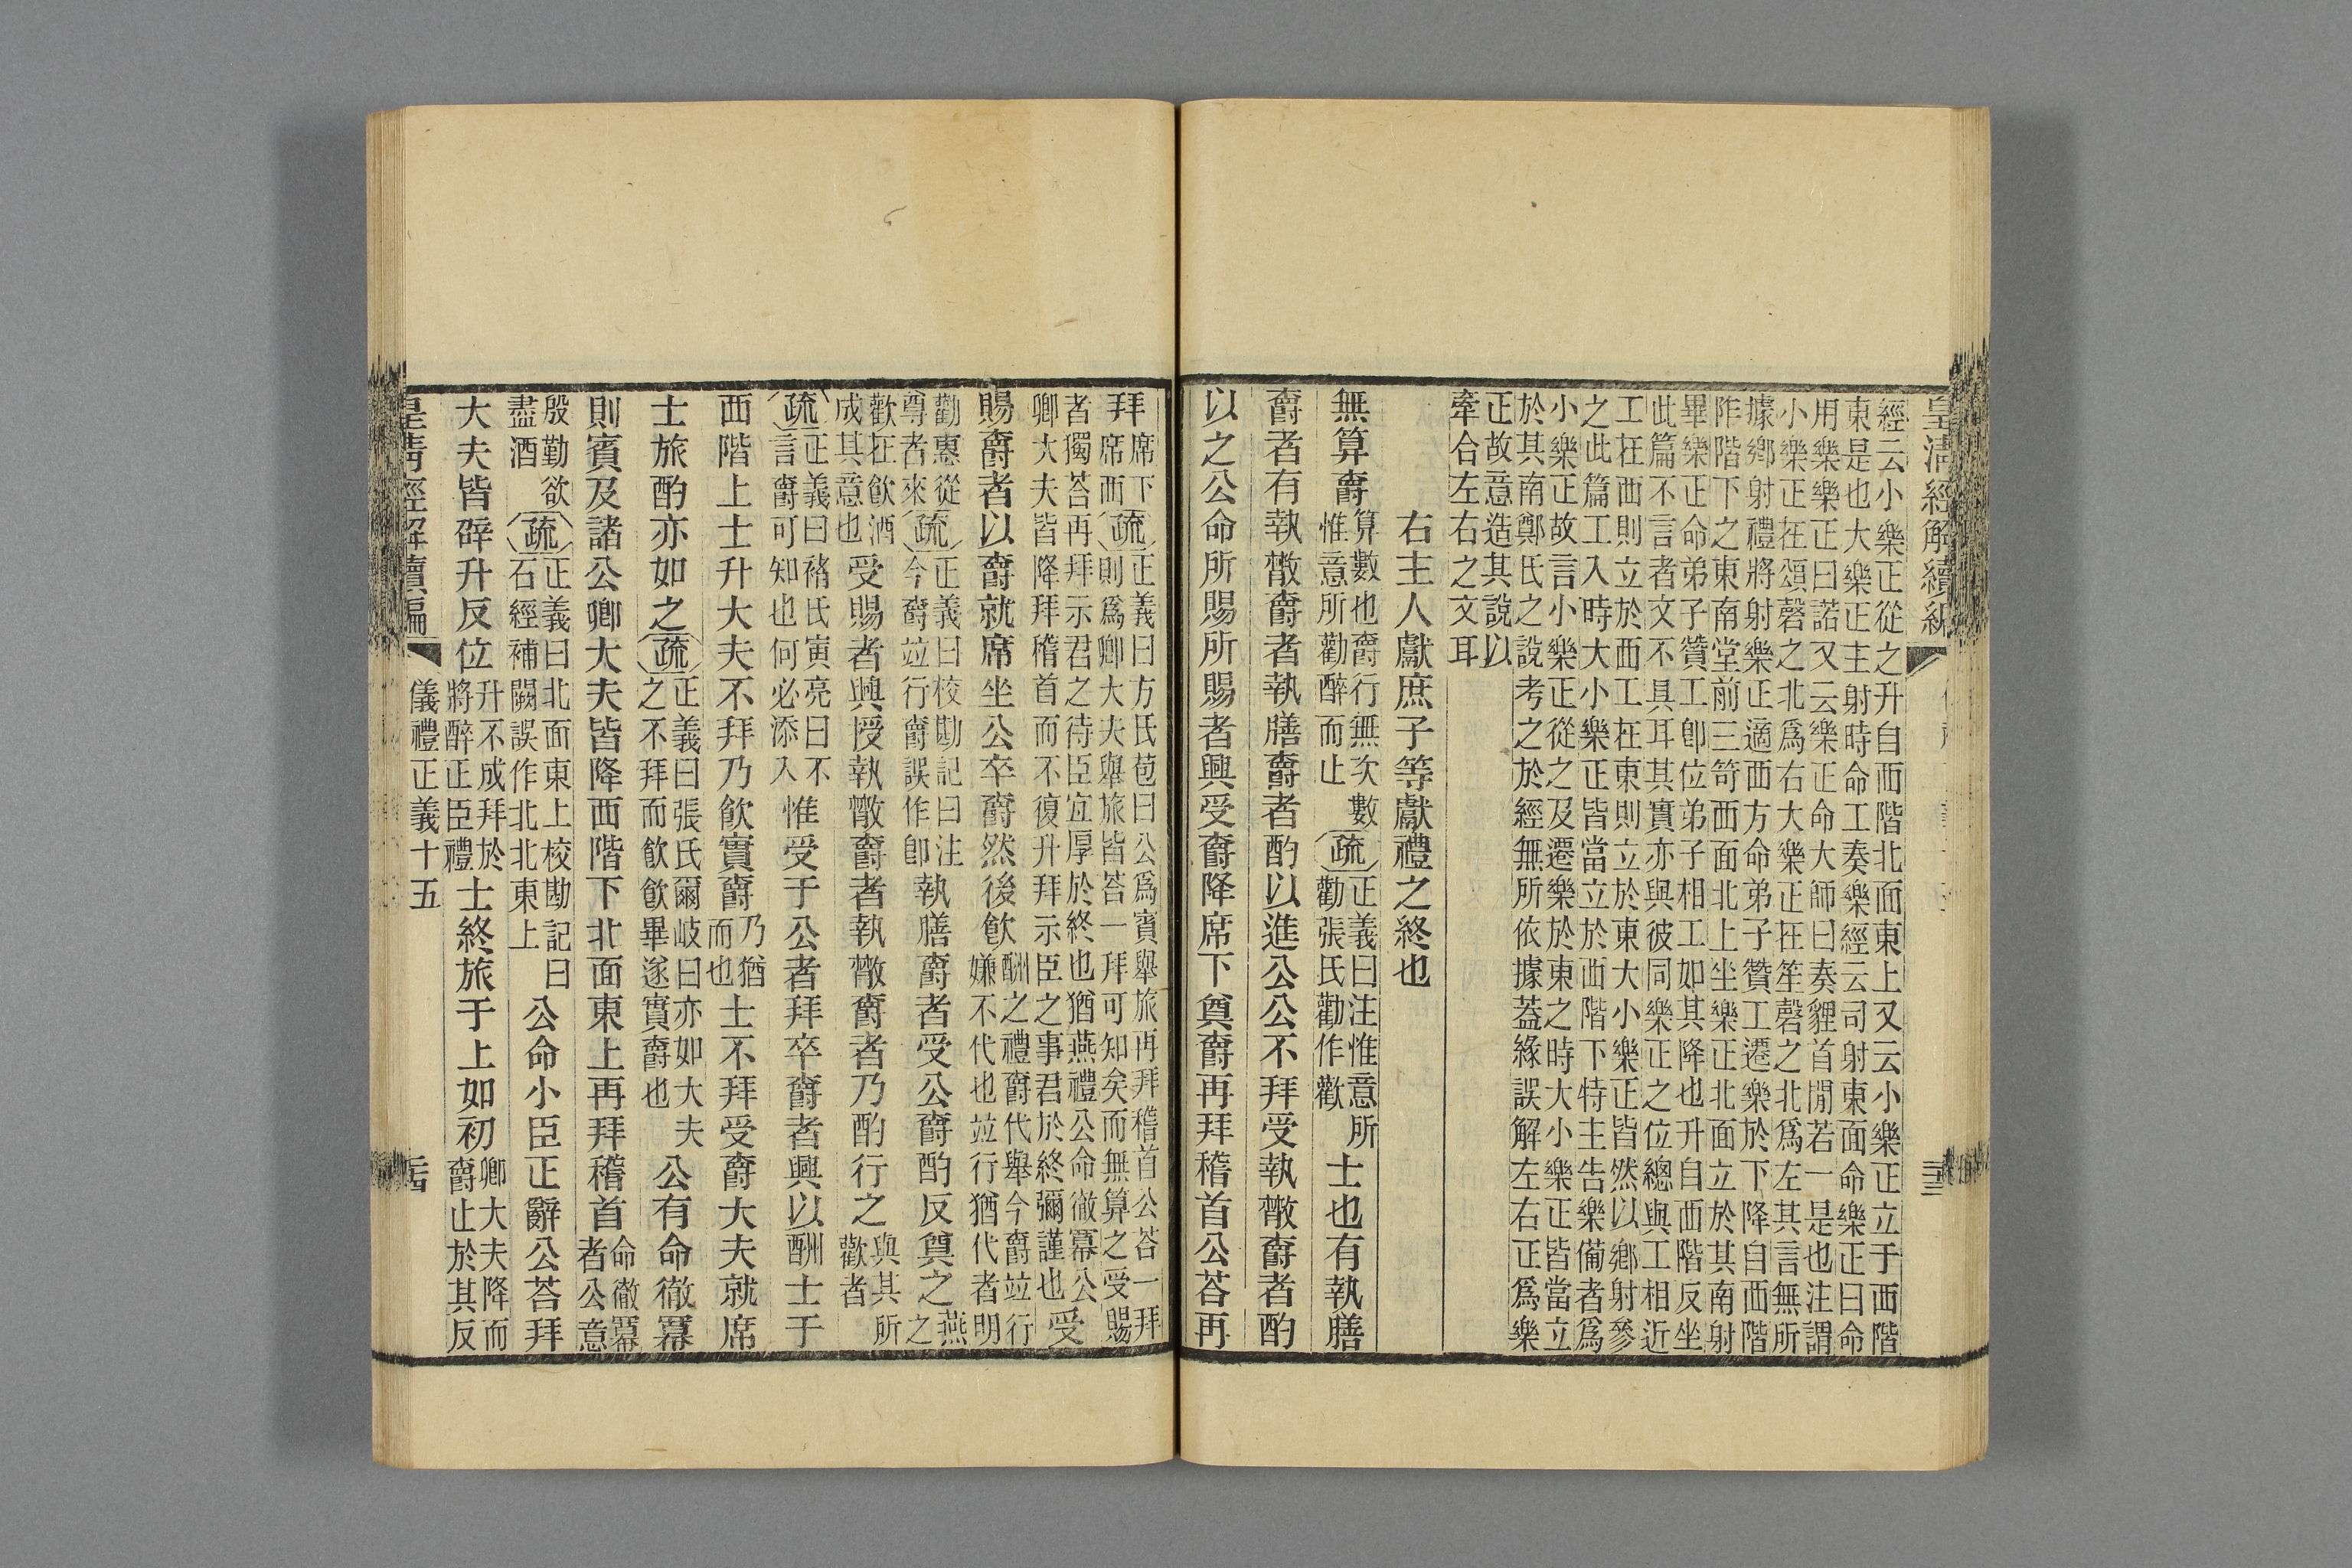 皇清經解續編
經云小樂正從之升自西階北面東上又云小樂正立于西階
東是也大樂正主射時命工奏樂經云司射東面命樂正曰命
用樂樂正曰諾又云樂正命大師曰奏貍首閒若一是也注謂
小樂正在頌磬之北爲右大樂正在笙磬之北爲左其言無所
據鄉射禮將射樂正適西方命弟子贊工遷樂於下降自西階
阼階下之東南堂前三笴西面北上坐樂正北面立於其南射
畢樂正命弟子贊工卽位弟子相工如其降也升自西階反坐
此篇不言者文不具耳其實亦與彼同樂正之位總與工相近
工在西則立於西工在東則立於東大小樂正皆然以鄉射參
之此篇工入時大小樂正皆當立於西階下特主告樂備者爲
小樂正故言小樂正從之及遷樂於東之時大小樂正皆當立
於其南鄭氏之說考之於經無所依據葢緣誤解左右正爲樂
正故意造其說以
牽合左右之文耳
右主人獻庶子等獻禮之終也
無算爵算數也爵行無次數惟意所勸醉而止疏正義曰注惟意所勸張氏勸作歡士也有執膳
爵者有執散爵者執膳爵者酌以進公公不拜受執散爵者酌
以之公命所賜所賜者興受爵降席下奠爵再拜稽首公荅再
拜席下席西疏正義曰方氏苞曰公爲賓舉旅再拜稽首公荅一拜則爲卿大夫舉旅皆荅一拜可知矣而無算之受賜
者獨荅再拜示君之待臣宜厚於終也猶燕禮公命徹冪公卿大夫皆降拜稽首而不復升拜示臣之事君於終彌謹也受
賜爵者以爵就席坐公卒爵然後飮酬之禮爵代舉今爵竝行嫌不代也竝行猶代者明
勸惠從尊者來疏正義曰校勘記曰注今爵竝行爵誤作卽執膳爵者受公爵酌反奠之燕之
歡在飮酒成其意也受賜者興授執散爵者執散爵者乃酌行之與其所歡者
疏正義曰褚氏寅亮曰不言爵可知也何必添入惟受于公者拜卒爵者興以酬士于
西階上士升大夫不拜乃飮實爵乃猶而也士不拜受爵大夫就席
士旅酌亦如之疏正義曰張氏爾岐曰亦如大夫之不拜而飮飮畢遂實爵也公有命徹冪
則賓及諸公卿大夫皆降西階下北面東上再拜稽首命徹冪者公意
殷勤欲盡酒疏正義曰北面東上校勘記曰石經補闕誤作北北東上公命小臣正辭公荅拜
大夫皆辟升反位升不成拜於將醉正臣禮士終旅于上如初卿大夫降而爵止於其反
皇淸經解續編
儀禮正義十五